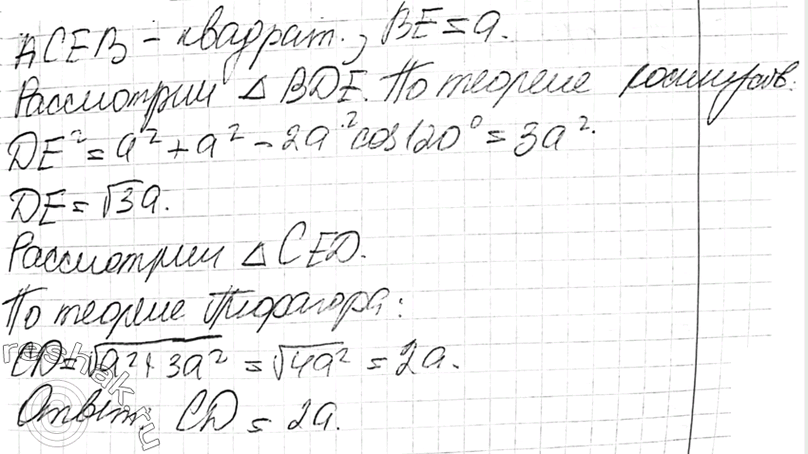 ACEB - квадрат., BE = a.
Рассмотрим △ BDE. По теореме косинусов:
DE² = a² + a² - 2a²·cos120° = 3a².
DE = √3a.
Рассмотрим △ CED.
По теореме Пифагора:
CD = √a² + 3a² = √4a² = 2a.
Ответ: CD = 2a.
reshak.ru